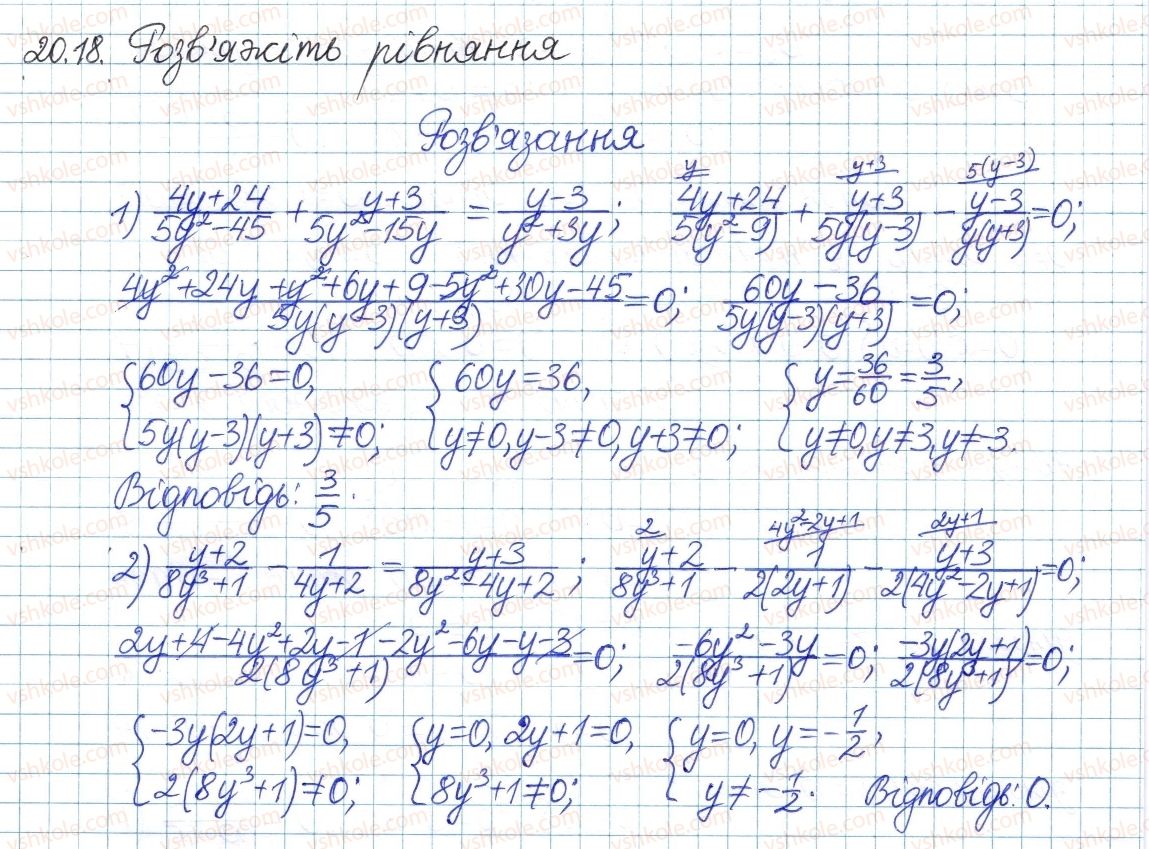 20.18. Розв'яжіть рівняння
Розв'язання
1) (4y+24)/(5y²-45) + (y+3)/(5y²-15y) = (y-3)/(y²+3y); (4y+24)/(5(y²-9)) [y] + (y+3)/(5y(y-3)) [y+3] - (y-3)/(y(y+3)) [5(y-3)] = 0;
(4y²+24y+y²+6y+9-5y²+30y-45)/(5y(y-3)(y+3)) = 0; (60y-36)/(5y(y-3)(y+3)) = 0;
{60y-36=0, {60y=36, {y=36/60=3/5,
{5y(y-3)(y+3)≠0; {y≠0, y-3≠0, y+3≠0; {y≠0, y≠3, y≠-3.
Відповідь: 3/5.
2) (y+2)/(8y³+1) - 1/(4y+2) = (y+3)/(8y²-4y+2); (y+2)/(8y³+1) [2] - 1/(2(2y+1)) [4y²-2y+1] - (y+3)/(2(4y²-2y+1)) [2y+1] = 0;
(2y+4-4y²+2y-1-2y²-6y-y-3)/(2(8y³+1)) = 0; (-6y²-3y)/(2(8y³+1)) = 0; (-3y(2y+1))/(2(8y³+1)) = 0;
{-3y(2y+1)=0, {y=0, 2y+1=0, {y=0, y=-1/2,
{2(8y³+1)≠0; {8y³+1≠0; {y≠-1/2. Відповідь: 0.